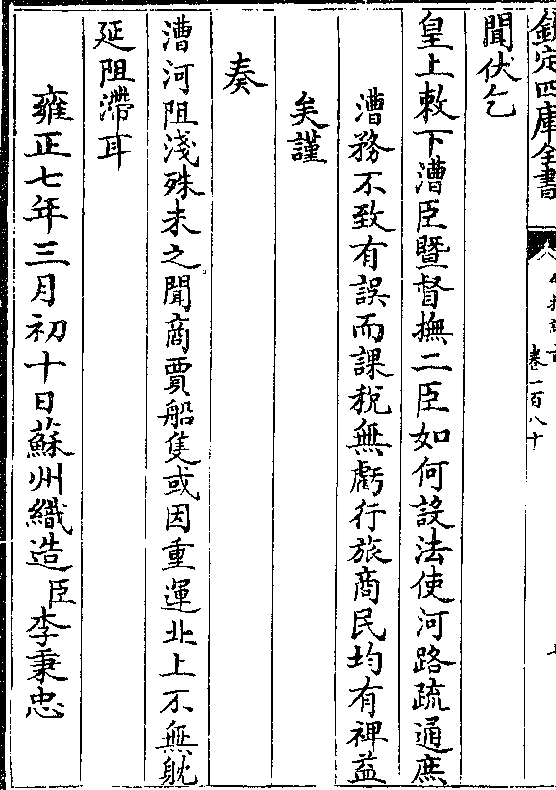 欽定四庫全書
卷一百八十
聞伏乞
皇上敕下漕臣暨督撫二臣如何設法使河路疏通庶
漕務不致有誤而課稅無虧行旅商民均有裨益
矣謹
奏
漕河阻淺殊未之聞商賈船隻或因重運北上不無躭
延阻滯耳
雍正七年三月初十日蘇州織造臣李秉忠